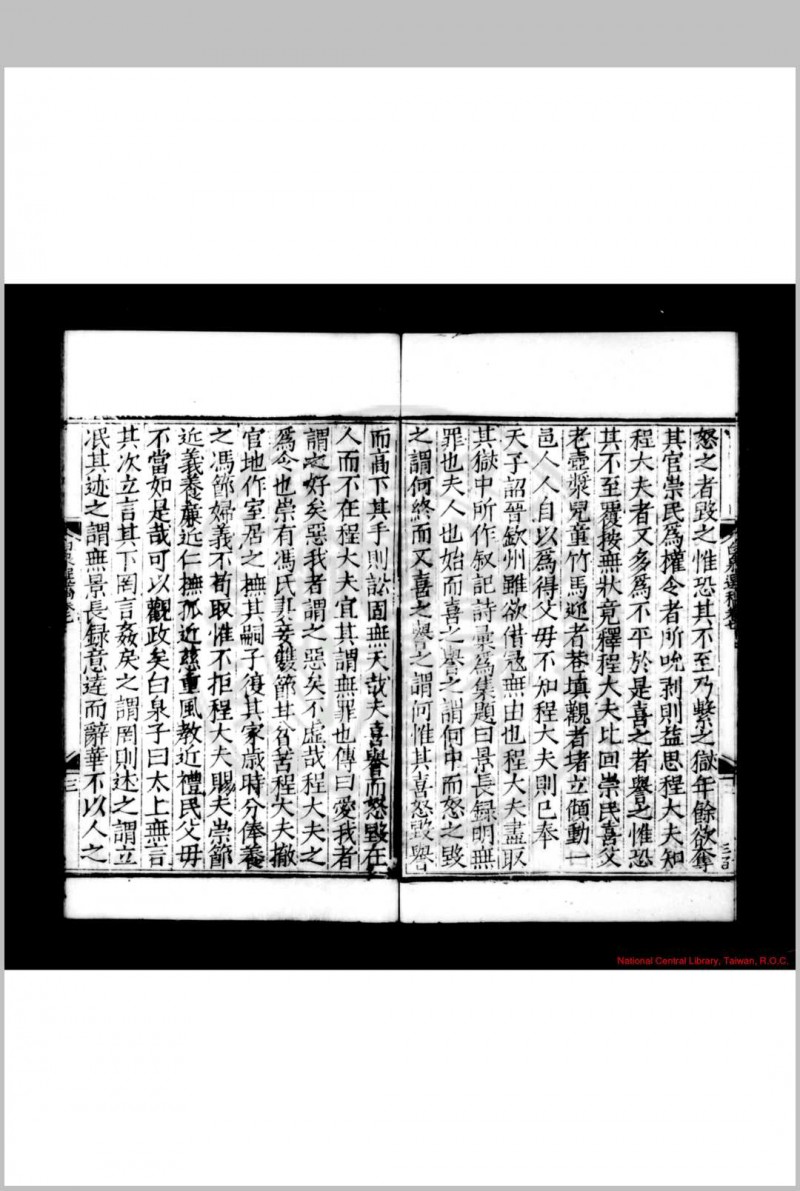 怒之者毀之惟恐其不至乃繫之獄年餘欲奪
其官崇民爲權令者所吮剥則益思程大夫知
程大夫者又多爲不平於是喜之者譽之惟恐
其不至覆按無狀竟釋程大夫比回崇民喜父
老壺漿兒童竹馬迎者巷填觀者堵立傾動一
邑人人自以爲得父毋不知程大夫則已奉
天子詔晉欽州雖欲借冦無由也程大夫盡取
其獄中所作叙記詩彚爲集題曰景長録明無
罪也夫人也始而喜之譽之謂何中而怒之毀
之謂何終而又喜之譽之謂何惟其喜怒毀譽
而高下其手則訟固無天哉夫喜譽而怒毀在
人而不在程大夫宜其謂無罪也傳曰愛我者
謂之好矣惡我者謂之惡矣不虛哉程大夫之
爲令也崇有馮氏妻妾雙節甚貧苦程大夫撤
官地作室居之撫其嗣子復其家歲時分俸養
之馮節婦義不苟取惟不拒程大夫賜夫崇節
近義養廉近仁撫孤近慈重風教近禮民父毋
不當如是哉可以觀政矣白泉子曰太上無言
其次立言其下罔言姦矣之謂罔則述之謂立
泯其迹之謂無景長録意達而辭華不以人之
三
National Central Library, Taiwan, R.O.C.